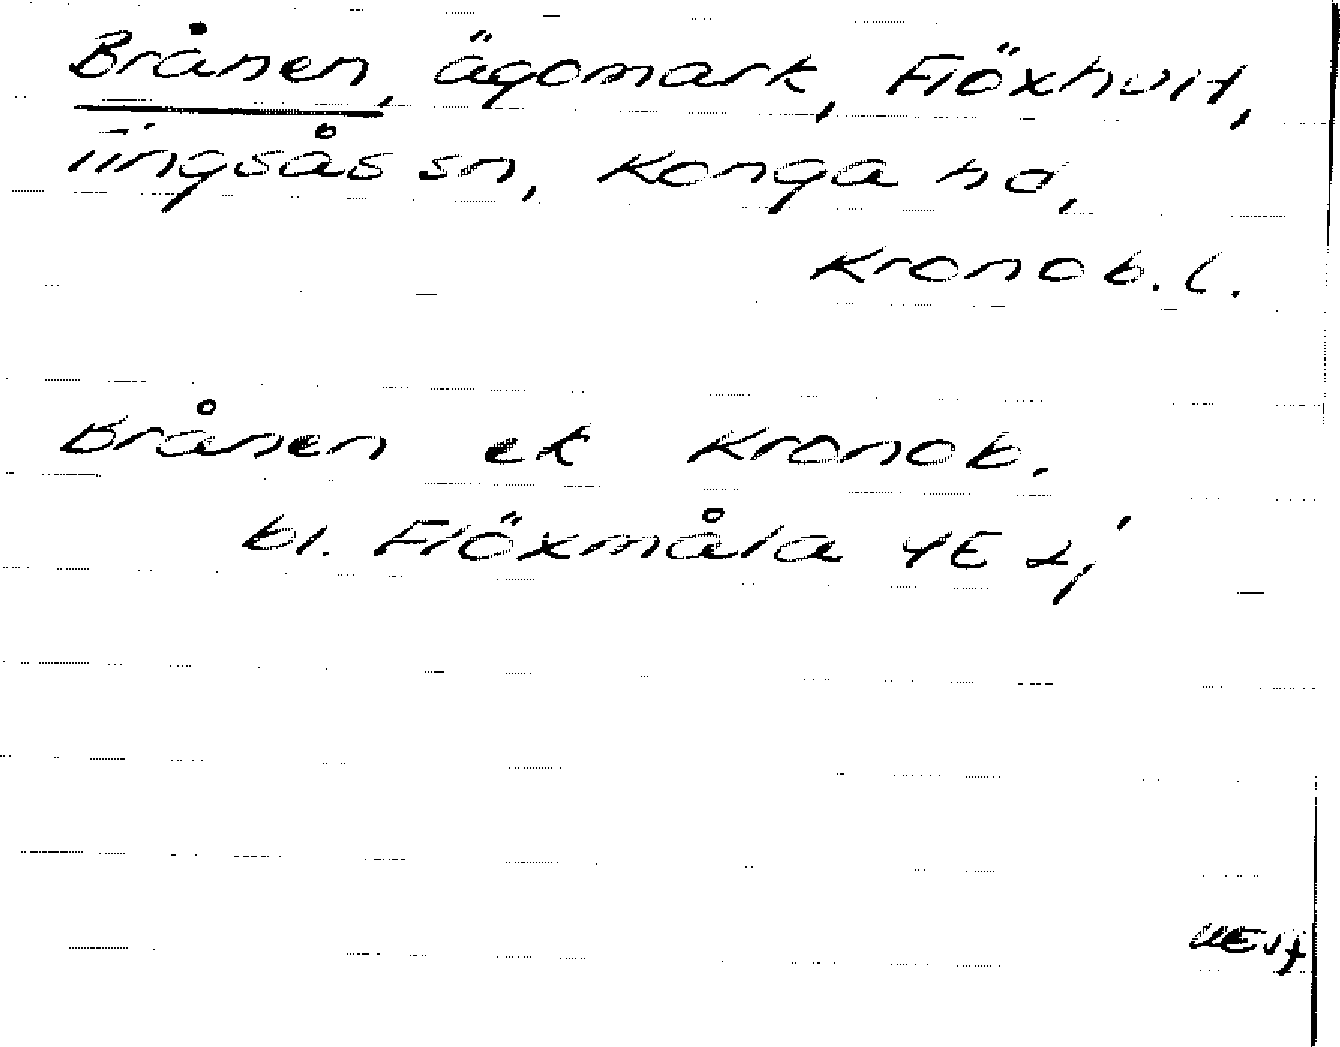 Brånen, ägomark, Flöxhult,
Tingsås sn, Konga hd,
Kronob. l.
Brånen ek Kronob.
bl. Flöxmåla 4E